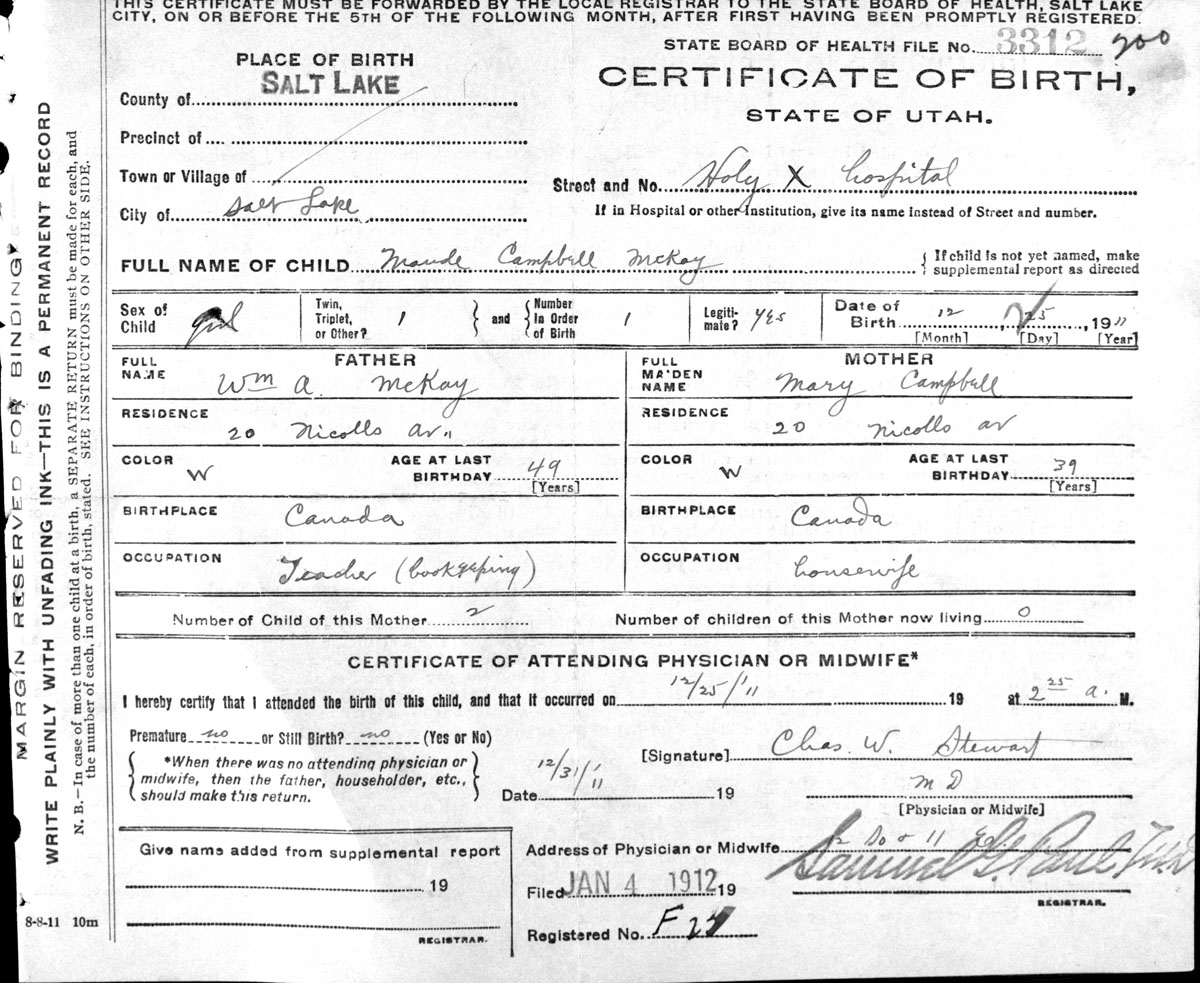 THIS CERTIFICATE MUST BE FORWARDED BY THE LOCAL REGISTRAR TO THE STATE BOARD OF HEALTH, SALT LAKE
CITY, ON OR BEFORE THE 5TH OF THE FOLLOWING MONTH, AFTER FIRST HAVING BEEN PROMPTLY REGISTERED.
STATE BOARD OF HEALTH FILE No. 3312 200
PLACE OF BIRTH
CERTIFICATE OF BIRTH,
STATE OF UTAH.
County of SALT LAKE
Precinct of
Town or Village of
Street and No. Holy X hospital
City of Salt Lake
If in Hospital or other Institution, give its name instead of Street and number.
FULL NAME OF CHILD Maude Campbell McKay { If child is not yet named, make supplemental report as directed
Sex of Child girl
Twin, Triplet, or Other? 1 } and { Number In Order of Birth 1
Legiti-mate? yes
Date of Birth 12, 25, 1911
[Month] [Day] [Year]
FATHER
FULL NAME Wm A. McKay
RESIDENCE 20 Nicolls av.
COLOR W
AGE AT LAST BIRTHDAY 49 [Years]
BIRTHPLACE Canada
OCCUPATION Teacher (bookgeping)
MOTHER
FULL MAIDEN NAME Mary Campbell
RESIDENCE 20 Nicolls av
COLOR W
AGE AT LAST BIRTHDAY 39 [Years]
BIRTHPLACE Canada
OCCUPATION housewife
Number of Child of this Mother 2 Number of children of this Mother now living 0
CERTIFICATE OF ATTENDING PHYSICIAN OR MIDWIFE*
I hereby certify that I attended the birth of this child, and that it occurred on 12/25/'11 19 at 2 25 a. M.
Premature no or Still Birth? no (Yes or No)
{ *When there was no attending physician or
midwife, then the father, householder, etc.,
should make this return. }
[Signature] Chas. W. Stewart
Date 12/31/'11 19
M D
[Physician or Midwife]
Give name added from supplemental report
19
REGISTRAR.
8-8-11 10m
Address of Physician or Midwife
Samuel G. Paul
REGISTRAR.
Filed JAN 4 1912 19
Registered No. F 24
MARGIN RESERVED FOR BINDING
WRITE PLAINLY WITH UNFADING INK—THIS IS A PERMANENT RECORD
N. B.—In case of more than one child at a birth, a SEPARATE RETURN must be made for each, and
the number of each, in order of birth, stated. SEE INSTRUCTIONS ON OTHER SIDE.